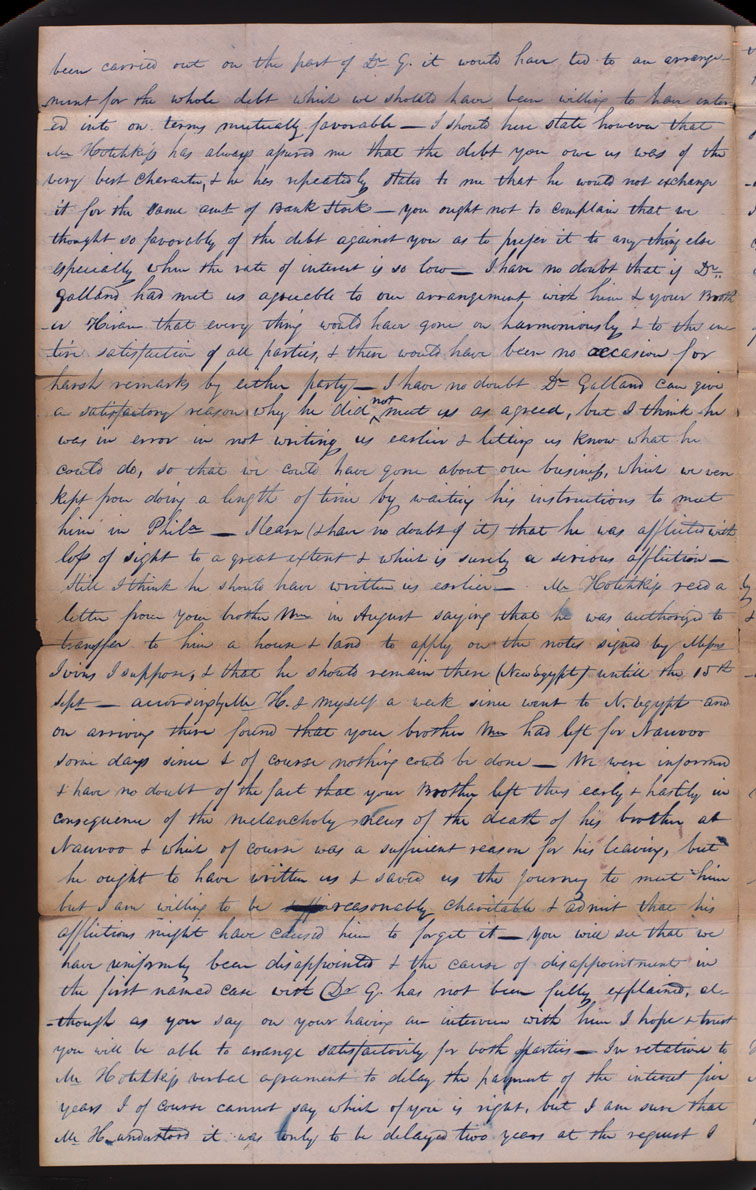 been carried out on the part of Dr G. it would have led to an arrange-
ment for the whole debt which we should have been willing to have enter-
ed into on terms mutually favorable — I should here state however that
Mr Hotchkiss has always assured me that the debt you owe us was of the
very best character, & he has repeatedly stated to me that he would not exchange
it for the same amt of Bank Stock — you ought not to complain that we
thought so favorably of the debt against you as to prefer it to any thing else
especially when the rate of interest is so low — I have no doubt that if Dr
Galland had met us agreeable to our arrangement with him & your Broth
er Hiram that every thing would have gone on harmoniously & to the en-
tire satisfaction of all parties, & there would have been no occasion for
harsh remarks by either party — I have no doubt Dr Galland can give
a satisfactory reason why he did not meet us as agreed, but I think he
was in error in not writing us earlier & letting us know what he
could do, so that we could have gone about our business, which we were
kept from doing a length of time by waiting his instructions to meet
him in Phila — I learn (& have no doubt of it) that he was afflicted with
loss of sight to a great extent & which is surely a serious affliction —
Still I think he should have written us earlier — Mr Hotchkiss recd a
letter from your brother Wm in August saying that he was authorized to
transfer to him a house & land to apply on the notes signed by Messrs
Ivins I suppose, & that he should remain there (New Egypt) untill the 15th
Sept — accordingly Mr H. & myself a week since went to N. Egypt and
on arriving there found that your brother Wm had left for Nauvoo
some days since & of course nothing could be done — We were informed
& have no doubt of the fact that your Brother left thus early & hastily in
consequence of the melancholy news of the death of his brother at
Nauvoo & which of course was a sufficient reason for his leaving, but
he ought to have written us & saved us the journey to meet him
but I am willing to be reasonably charitable & admit that his
afflictions might have caused him to forget it — you will see that we
have uniformly been disappointed & the cause of disappointment in
the first named case with Dr G. has not been fully explained, al-
though as you say on your having an interview with him I hope & trust
you will be able to arange satisfactorily for both parties — In relation to
Mr Hotchkiss verbal agreement to delay the payment of the interest five
years I of course cannot say which of you is right, but I am sure that
Mr H. understood it was only to be delayed two years at the request I